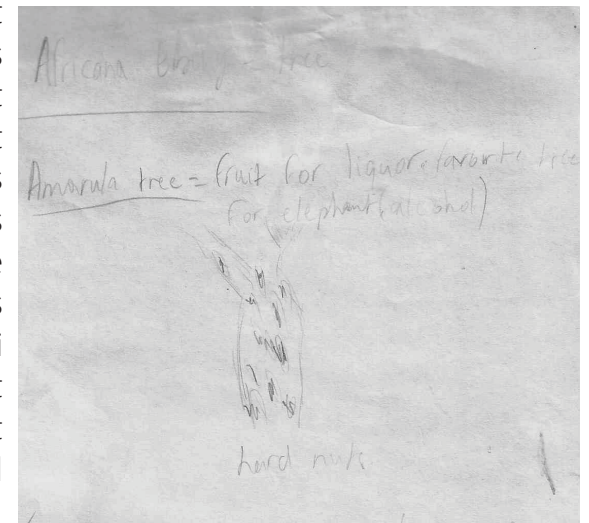 Africana - tree
Amarula tree = fruit for liquor. favorite tree
for elephant (alcohol)
hard nuts